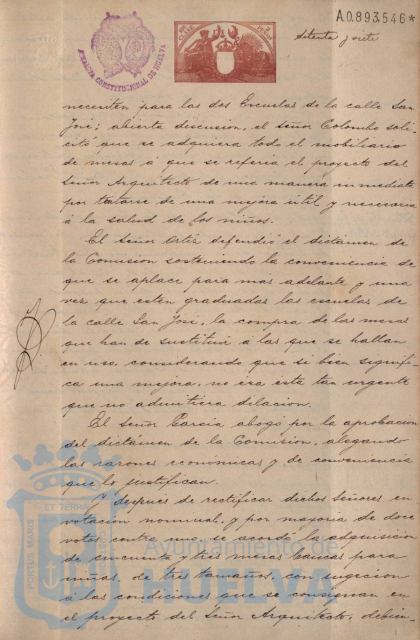 A.0.893,546*
setenta y siete
ALCALDIA CONSTITUCIONAL DE HUELVA
necesiten para las dos Escuelas de la calle San
José; abierta discusion, el señor Colombo soli-
citó que se adquiera todo el mobiliario
de mesas á que se referia el proyecto del
Señor Arquitecto de una manera inmediata
por tratarse de una mejora útil y necesaria
á la salud de los niños.
El Señor Ortiz defendió el dictámen de
la Comisión sosteniendo la conveniencia de
que se aplace para mas adelante y una
vez que esten graduadas las escuelas de
la calle San José, la compra de las mesas
que han de sustituir á las que se hallan
en uso, considerando que si bien signifi-
ca una mejora, no era esta tan urgente
que no admitiera dilacion.
El Señor Garcia abogó por la aprobacion
del dictámen de la Comision, alegando
las razones económicas y de conveniencia
que lo justifican.
Y después de rectificar dichos señores en
votacion nominal, y por mayoria de doce
votos contra uno, se acordó la adquisicion
de cincuenta y tres mesas bancas para
niñas, de tres tamaños, con sugecion
á las condiciones que se consignan en
el proyecto del Señor Arquitecto, debien
PORTUS MARIS ET TERRAE
Ayuntamiento de
HUELVA